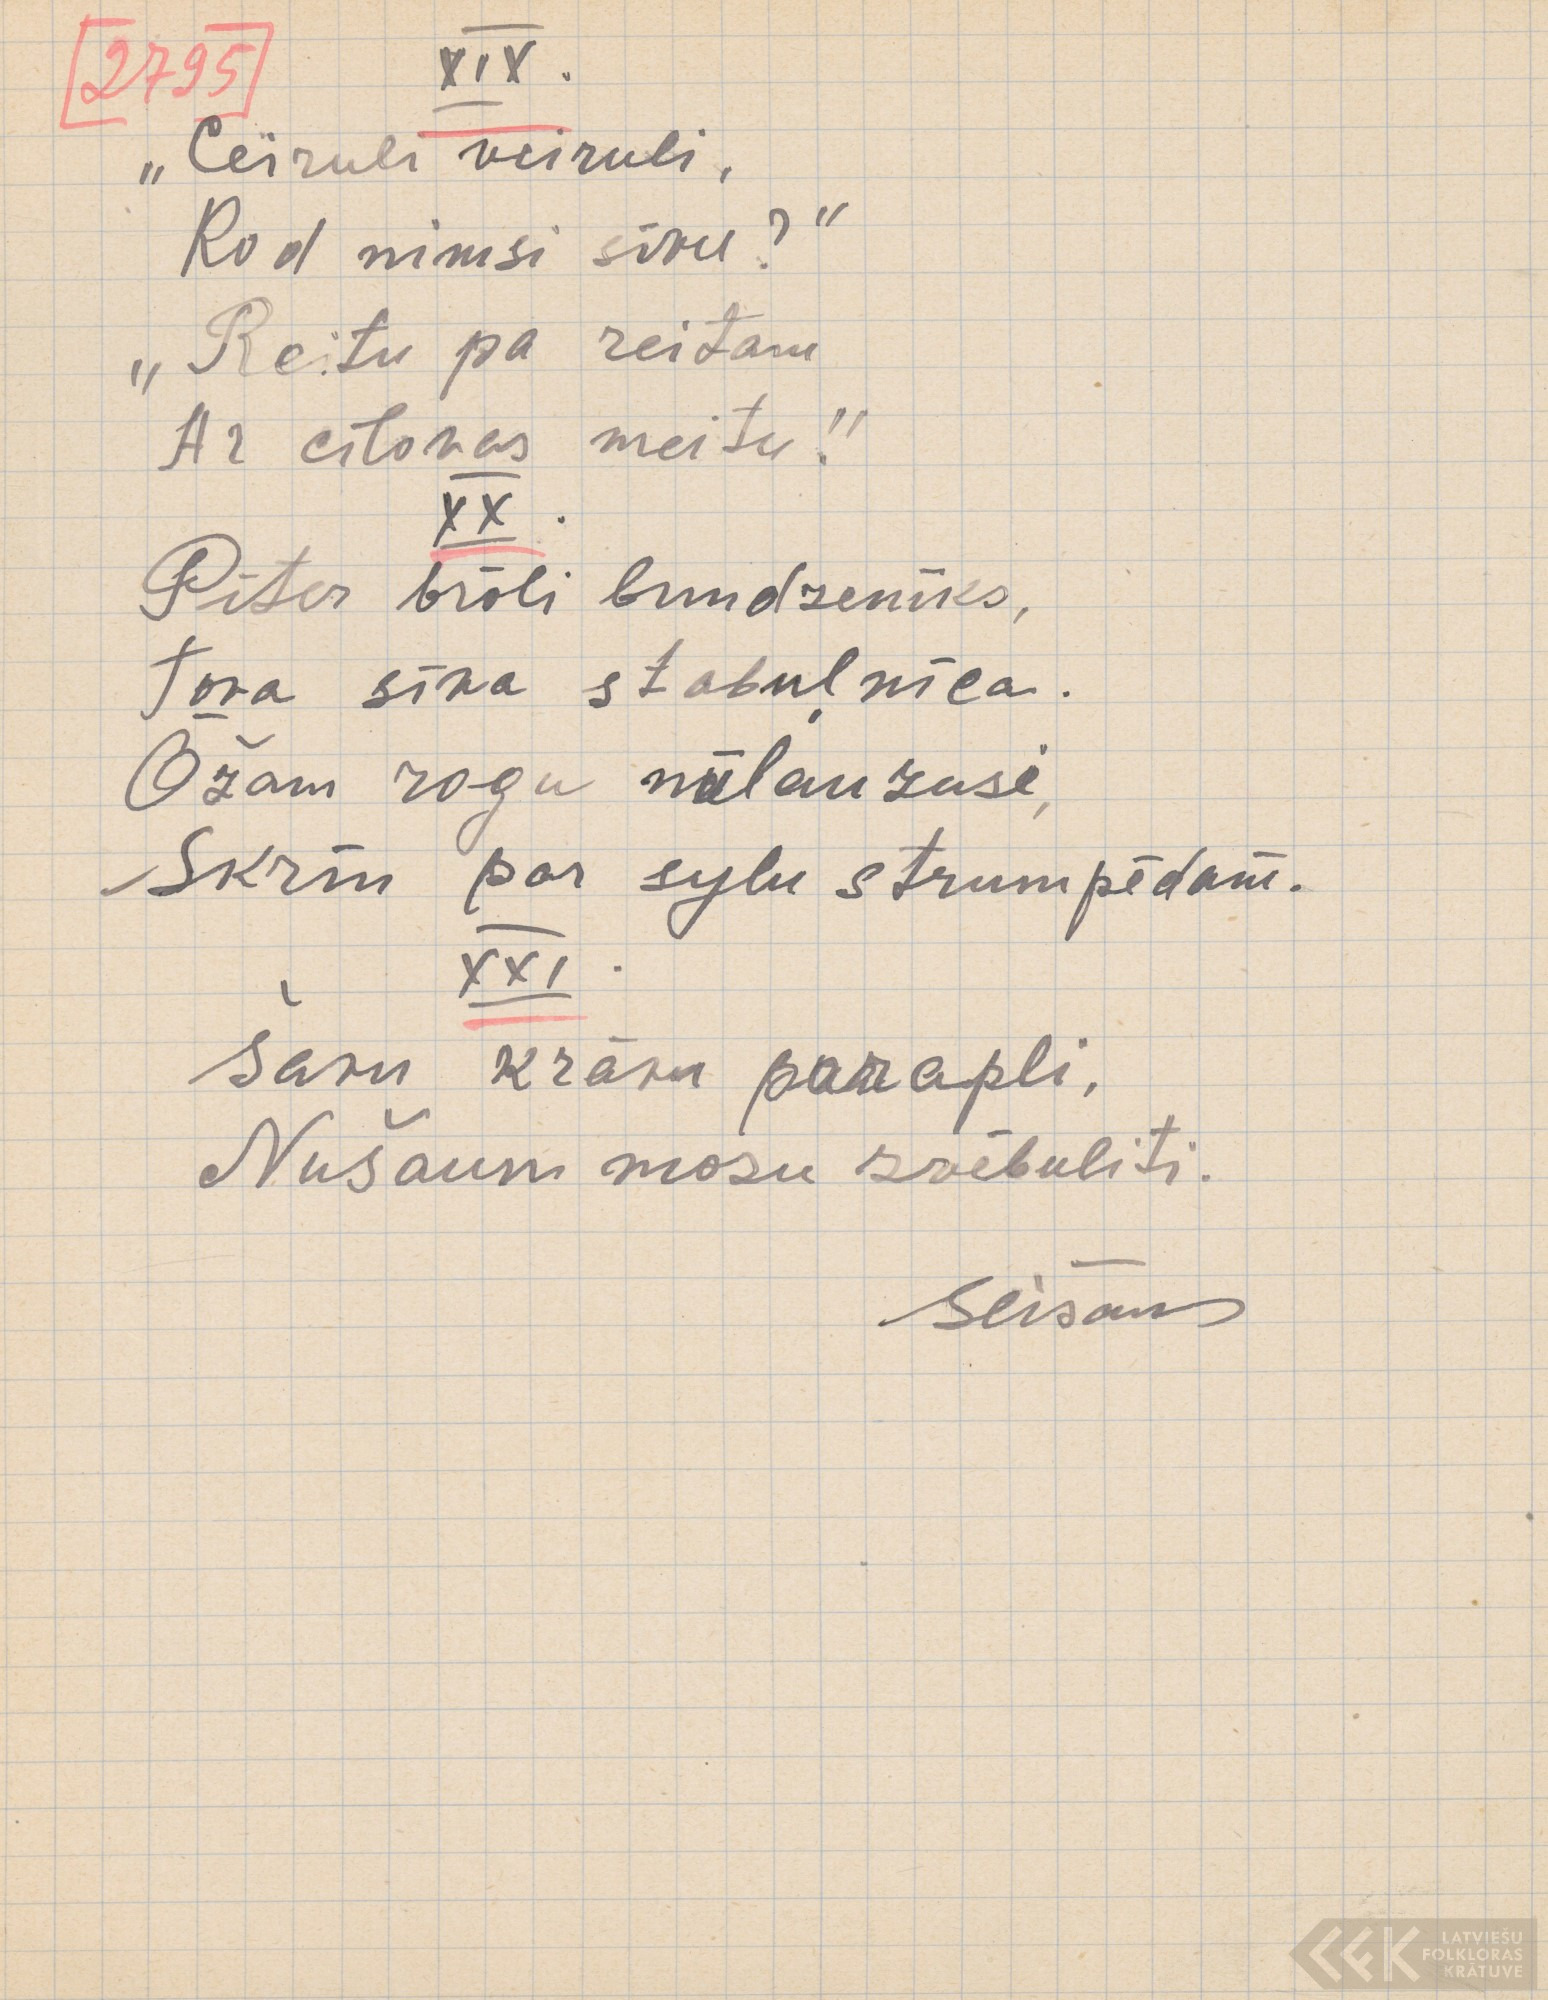 [2795]
XIX.
„Ceiruli veiruli,
Kod nimsi sīvu?"
„Reitu pa reitam
Ar cilovas meitu!"
XX.
Pīter brōli bundzenīks,
Tova sīva stabuļnīca.
Ōžam rogu nūlauzuse,
Skrīn par sylu strumpēdam.
XXI.
Šavu krāvu parapli,
Nušaum mozu zvēbuliti.
Seisāns
LATVIEŠU
FOLKLORAS
KRĀTUVE